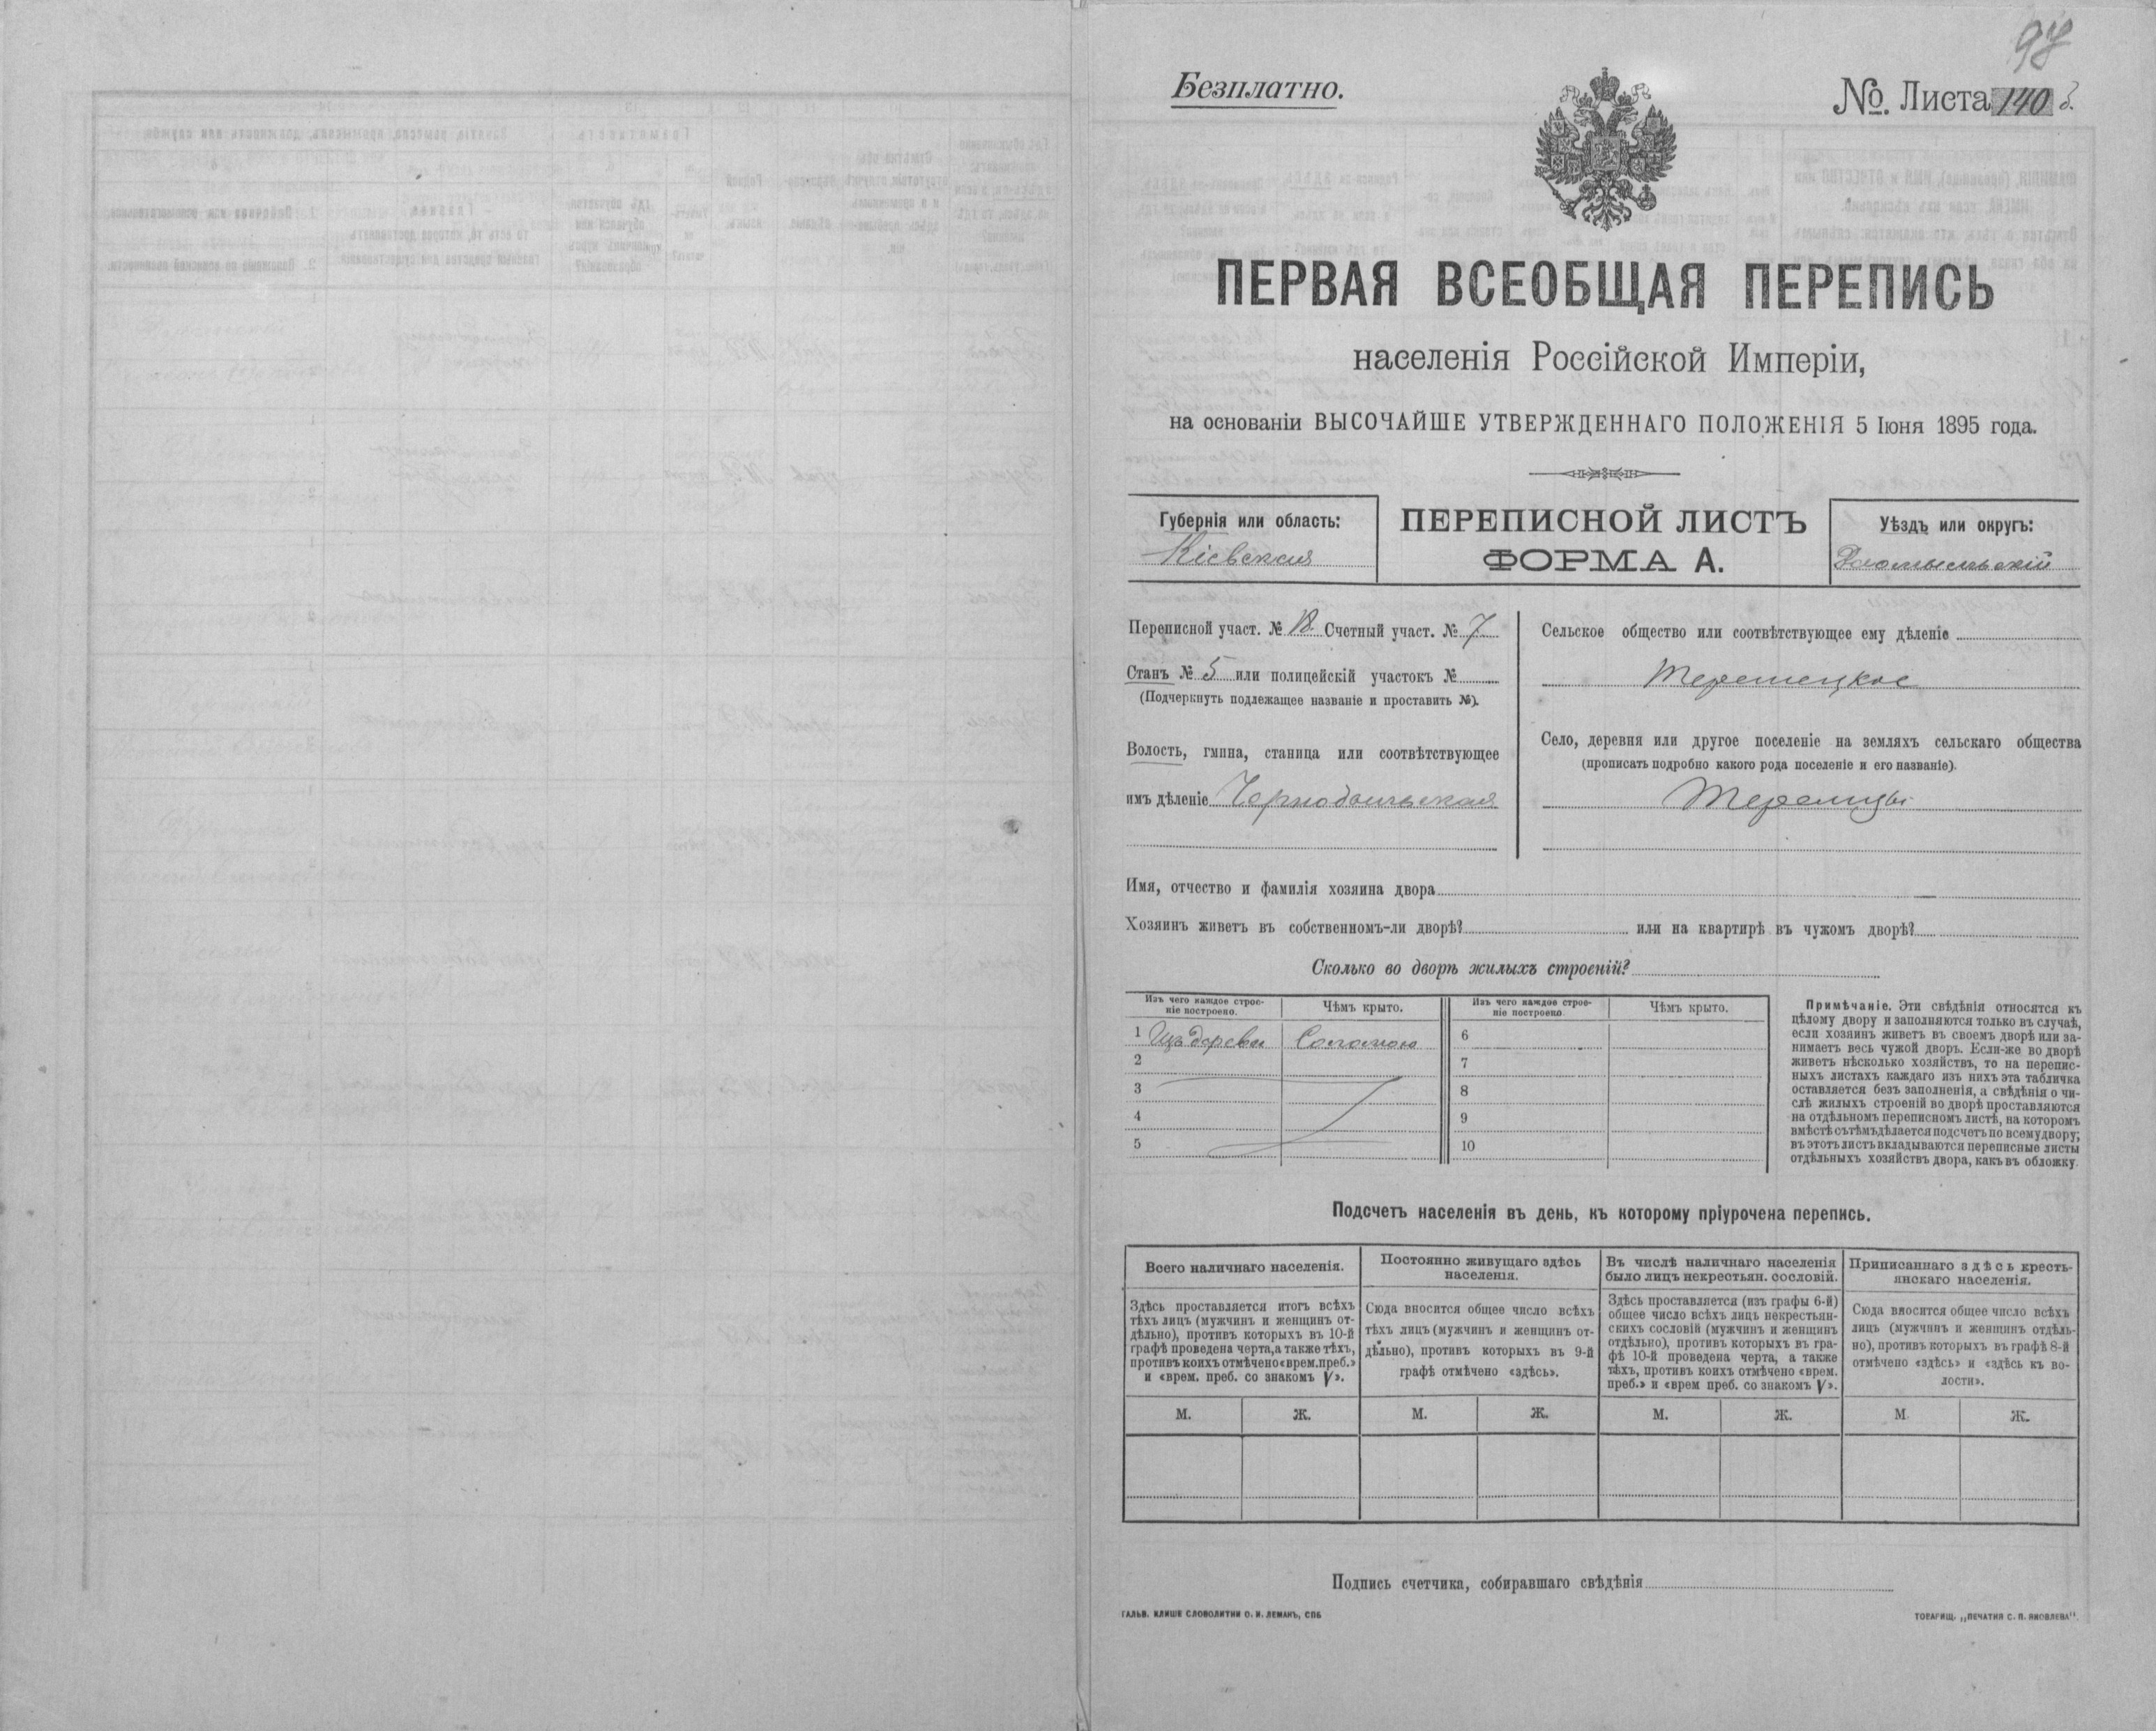 97
Безплатно.
№ Листа 140 б.
ПЕРВАЯ ВСЕОБЩАЯ ПЕРЕПИСЬ
населенія Россійской Имперіи,
на основаніи ВЫСОЧАЙШЕ УТВЕРЖДЕННАГО ПОЛОЖЕНІЯ 5 Іюня 1895 года.
Губернія или область:
Кіевская
ПЕРЕПИСНОЙ ЛИСТЪ
ФОРМА А.
Уѣздъ или округъ:
Радомысльскій
Переписной участ. № 18 Счетный участ. № 7
Станъ № 5 или полицейскій участокъ №
(Подчеркнуть подлежащее названіе и проставить №).
Волость, гмина, станица или соотвѣтствующее
имъ дѣленіе Чернобыльская
Сельское общество или соотвѣтствующее ему дѣленіе
Теремецкое
Село, деревня или другое поселеніе на земляхъ сельскаго общества
(прописать подробно какого рода поселеніе и его названіе).
Теремцы
Имя, отчество и фамилія хозяина двора
Хозяинъ живетъ въ собственномъ-ли дворѣ? или на квартирѣ въ чужомъ дворѣ?
Сколько во дворѣ жилыхъ строеній?
Изъ чего каждое строе-
ніе построено.
Чѣмъ крыто.
Изъ чего каждое строе-
ніе построено.
Чѣмъ крыто.
1 Изъ дерева Соломою
2
3
4
5
6
7
8
9
10
Примѣчаніе. Эти свѣдѣнія относятся къ
цѣлому двору и заполняются только въ случаѣ,
если хозяинъ живетъ въ своемъ дворѣ или за-
нимаетъ весь чужой дворъ. Если-же во дворѣ
живетъ нѣсколько хозяйствъ, то на перепис-
ныхъ листахъ каждаго изъ нихъ эта табличка
оставляется безъ заполненія, а свѣдѣнія о чи-
слѣ жилыхъ строеній во дворѣ проставляются
на отдѣльномъ переписномъ листѣ, на которомъ
вмѣстѣ съ тѣмъ дѣлается подсчетъ по всему двору;
въ этотъ листъ вкладываются переписные листы
отдѣльныхъ хозяйствъ двора, какъ въ обложку.
Подсчетъ населенія въ день, къ которому пріурочена перепись.
Всего наличнаго населенія.
Здѣсь проставляется итогъ всѣхъ
тѣхъ лицъ (мужчинъ и женщинъ от-
дѣльно), противъ которыхъ въ 10-й
графѣ проведена черта, а также тѣхъ,
противъ коихъ отмѣчено «врем. преб.»
и «врем. преб. со знакомъ V».
М. Ж.
Постоянно живущаго здѣсь
населенія.
Сюда вносится общее число всѣхъ
тѣхъ лицъ (мужчинъ и женщинъ от-
дѣльно), противъ которыхъ въ 9-й
графѣ отмѣчено «здѣсь».
М. Ж.
Въ числѣ наличнаго населенія
было лицъ некрестьян. сословій.
Здѣсь проставляется (изъ графы 6-й)
общее число всѣхъ лицъ некрестьян-
скихъ сословій (мужчинъ и женщинъ
отдѣльно), противъ которыхъ въ гра-
фѣ 10-й проведена черта, а также
тѣхъ, противъ коихъ отмѣчено «врем.
преб.» и «врем преб. со знакомъ V».
М. Ж.
Приписаннаго здѣсь кресть-
янскаго населенія.
Сюда вносится общее число всѣхъ
лицъ (мужчинъ и женщинъ отдѣль-
но), противъ которыхъ въ графѣ 8-й
отмѣчено «здѣсь» и «здѣсь къ во-
лости».
М. Ж.
Подпись счетчика, собиравшаго свѣдѣнія
ГАЛЬВ. КЛИШЕ СЛОВОЛИТНИ О. И. ЛЕМАНЪ, СПБ
ТОВАРИЩ. „ПЕЧАТНЯ С. П. ЯКОВЛЕВА“.